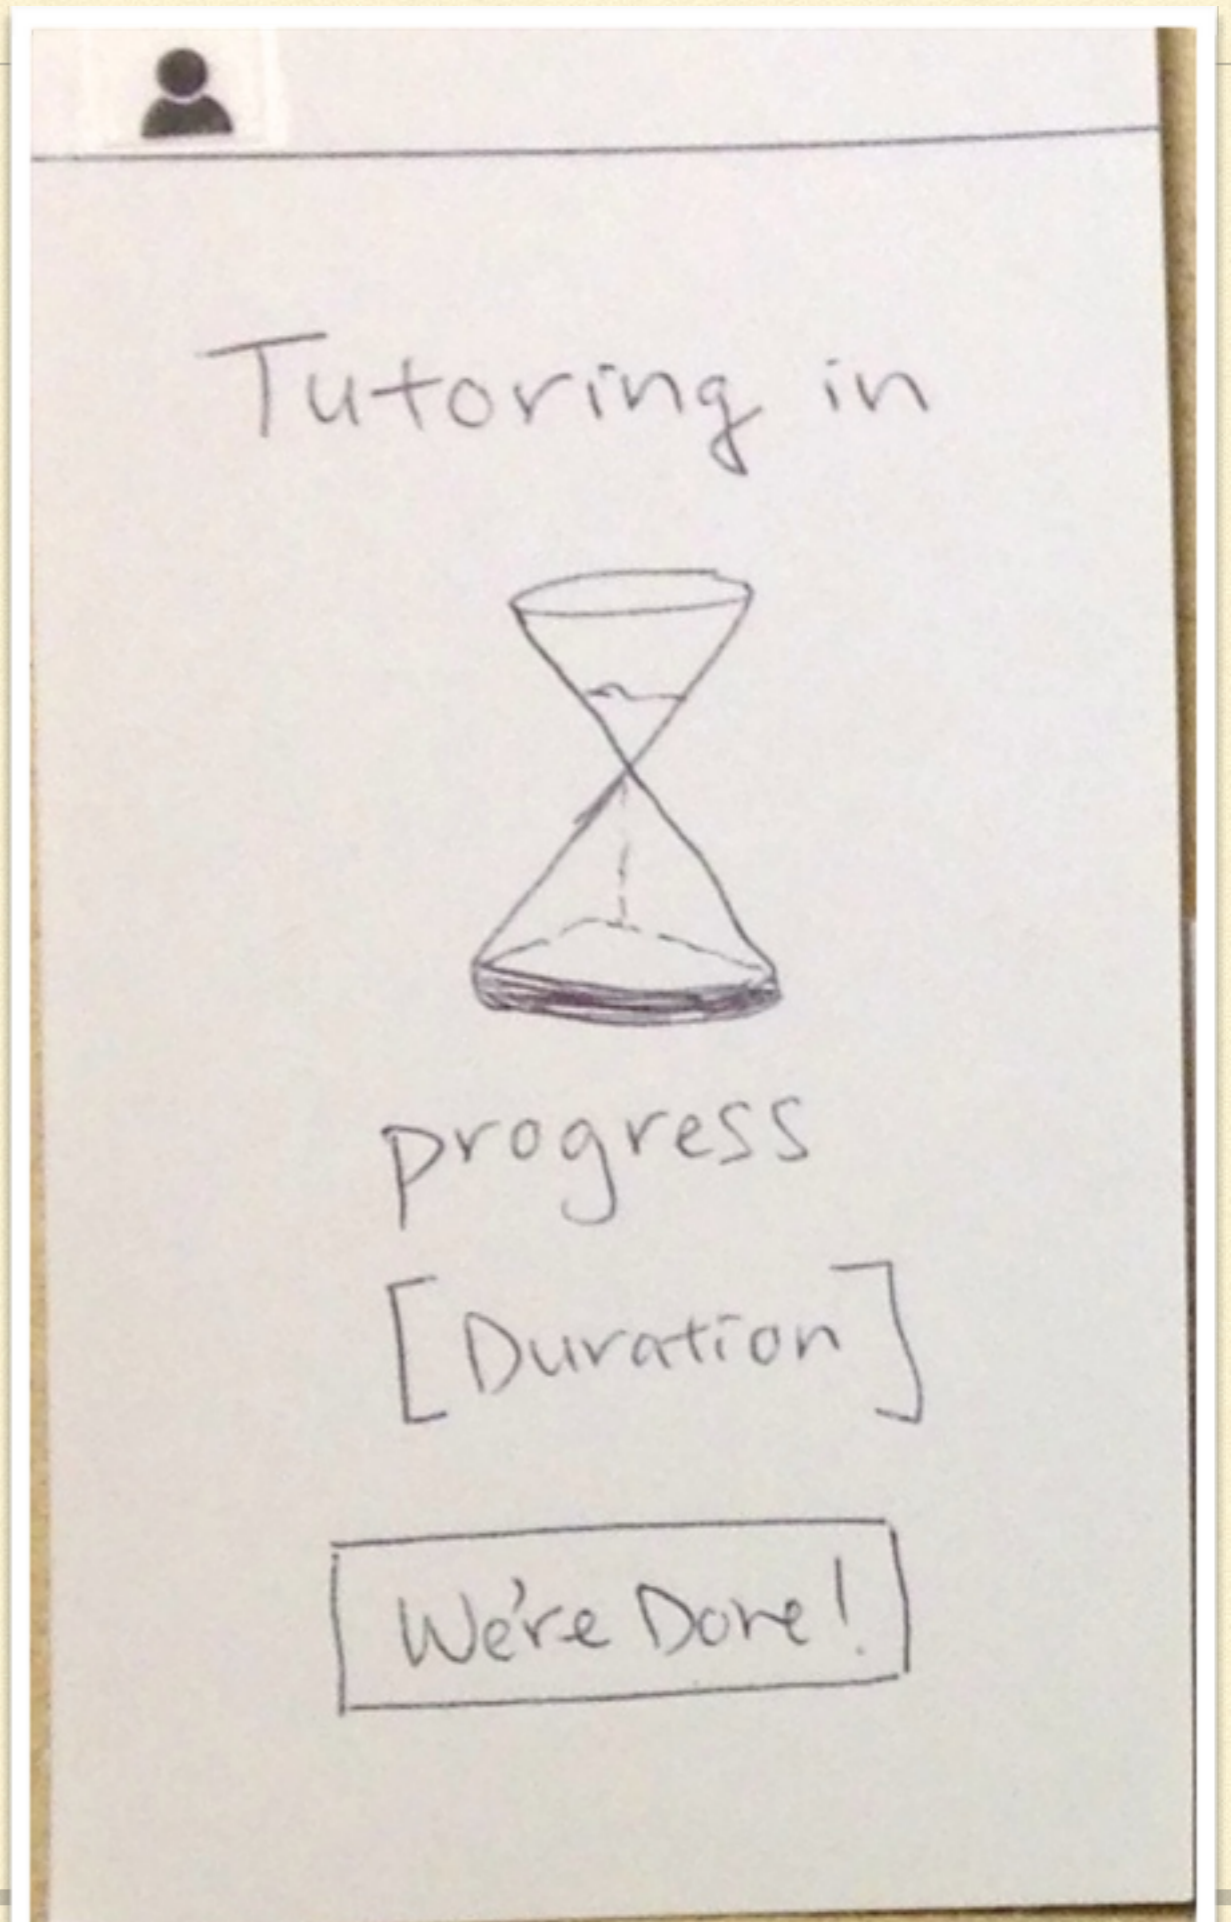 Tutoring in
progress
[Duration]
We're Done!